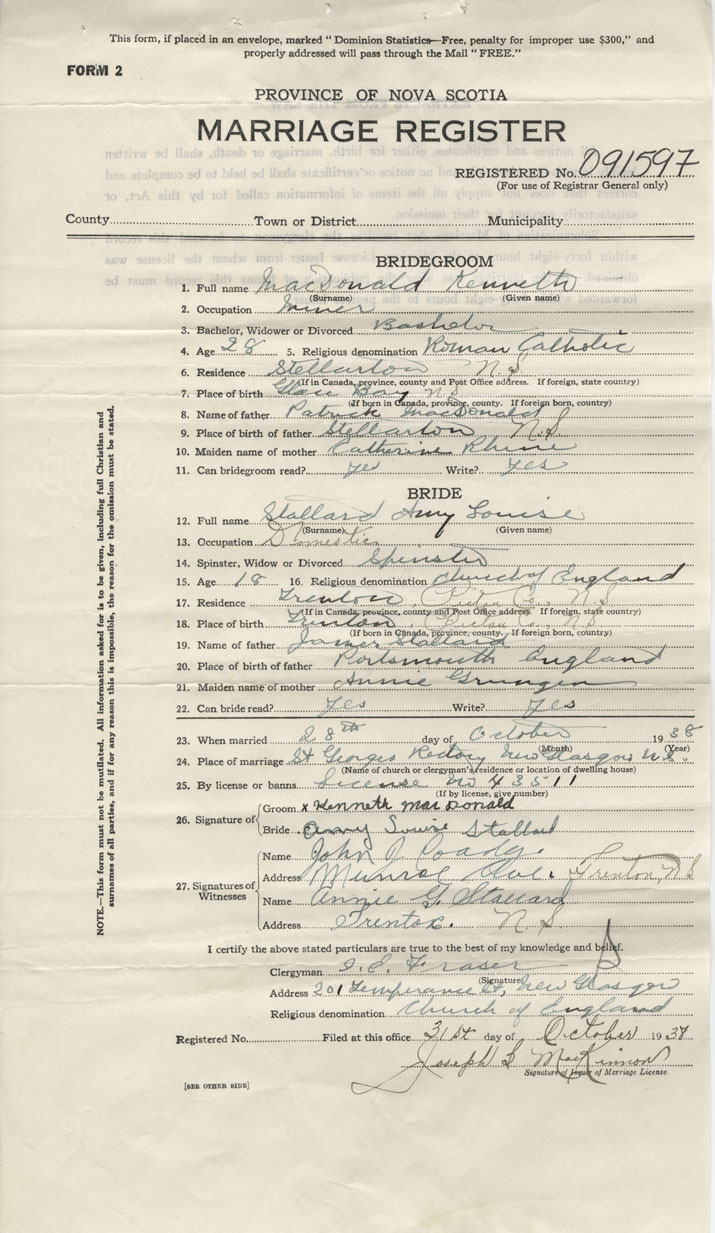 This form, if placed in an envelope, marked "Dominion Statistics—Free, penalty for improper use $300," and
properly addressed will pass through the Mail "FREE."
FORM 2
PROVINCE OF NOVA SCOTIA
MARRIAGE REGISTER
REGISTERED No. 091597
(For use of Registrar General only)
County Town or District Municipality
BRIDEGROOM
1. Full name MacDonald Kenneth
(Surname) (Given name)
2. Occupation Miner
3. Bachelor, Widower or Divorced Bachelor
4. Age 28 5. Religious denomination Roman Catholic
6. Residence Stellarton N.S.
(If in Canada, province, county and Post Office address. If foreign, state country)
7. Place of birth Glace Bay N.S.
(If born in Canada, province, county. If foreign born, country)
8. Name of father Patrick MacDonald
9. Place of birth of father Stellarton N.S.
10. Maiden name of mother Catherine
11. Can bridegroom read? Yes Write? Yes
BRIDE
12. Full name Stallard Amy Louise
(Surname) (Given name)
13. Occupation Domestic
14. Spinster, Widow or Divorced Spinster
15. Age 18 16. Religious denomination Church of England
17. Residence Trenton, Pictou Co., N.S.
(If in Canada, province, county and Post Office address. If foreign, state country)
18. Place of birth Trenton, Pictou Co., N.S.
(If born in Canada, province, county. If foreign born, country)
19. Name of father James Stallard
20. Place of birth of father Portsmouth England
21. Maiden name of mother Annie
22. Can bride read? Yes Write? Yes
23. When married 28th day of October 1938
(Month) (Year)
24. Place of marriage St Georges Rectory New Glasgow N.S.
(Name of church or clergyman's residence or location of dwelling house)
25. By license or banns License No 43511
(If by license, give number)
26. Signature of Groom x Kenneth MacDonald
Bride Amy Louise Stallard
27. Signatures of Witnesses
Name John
Address Munroe Ave. Trenton, N.S
Name Annie G. Stallard
Address Trenton. N.S.
I certify the above stated particulars are true to the best of my knowledge and belief.
Clergyman Fraser
(Signature)
Address 201 Temperance St, New Glasgow
Religious denomination Church of England
Registered No. Filed at this office 31st day of October 1938
Joseph MacKinnon
Signature of Issuer of Marriage License.
[SEE OTHER SIDE]
NOTE.—This form must not be mutilated. All information asked for is to be given, including full Christian and
surnames of all parties, and if for any reason this is impossible, the reason for the omission must be stated.